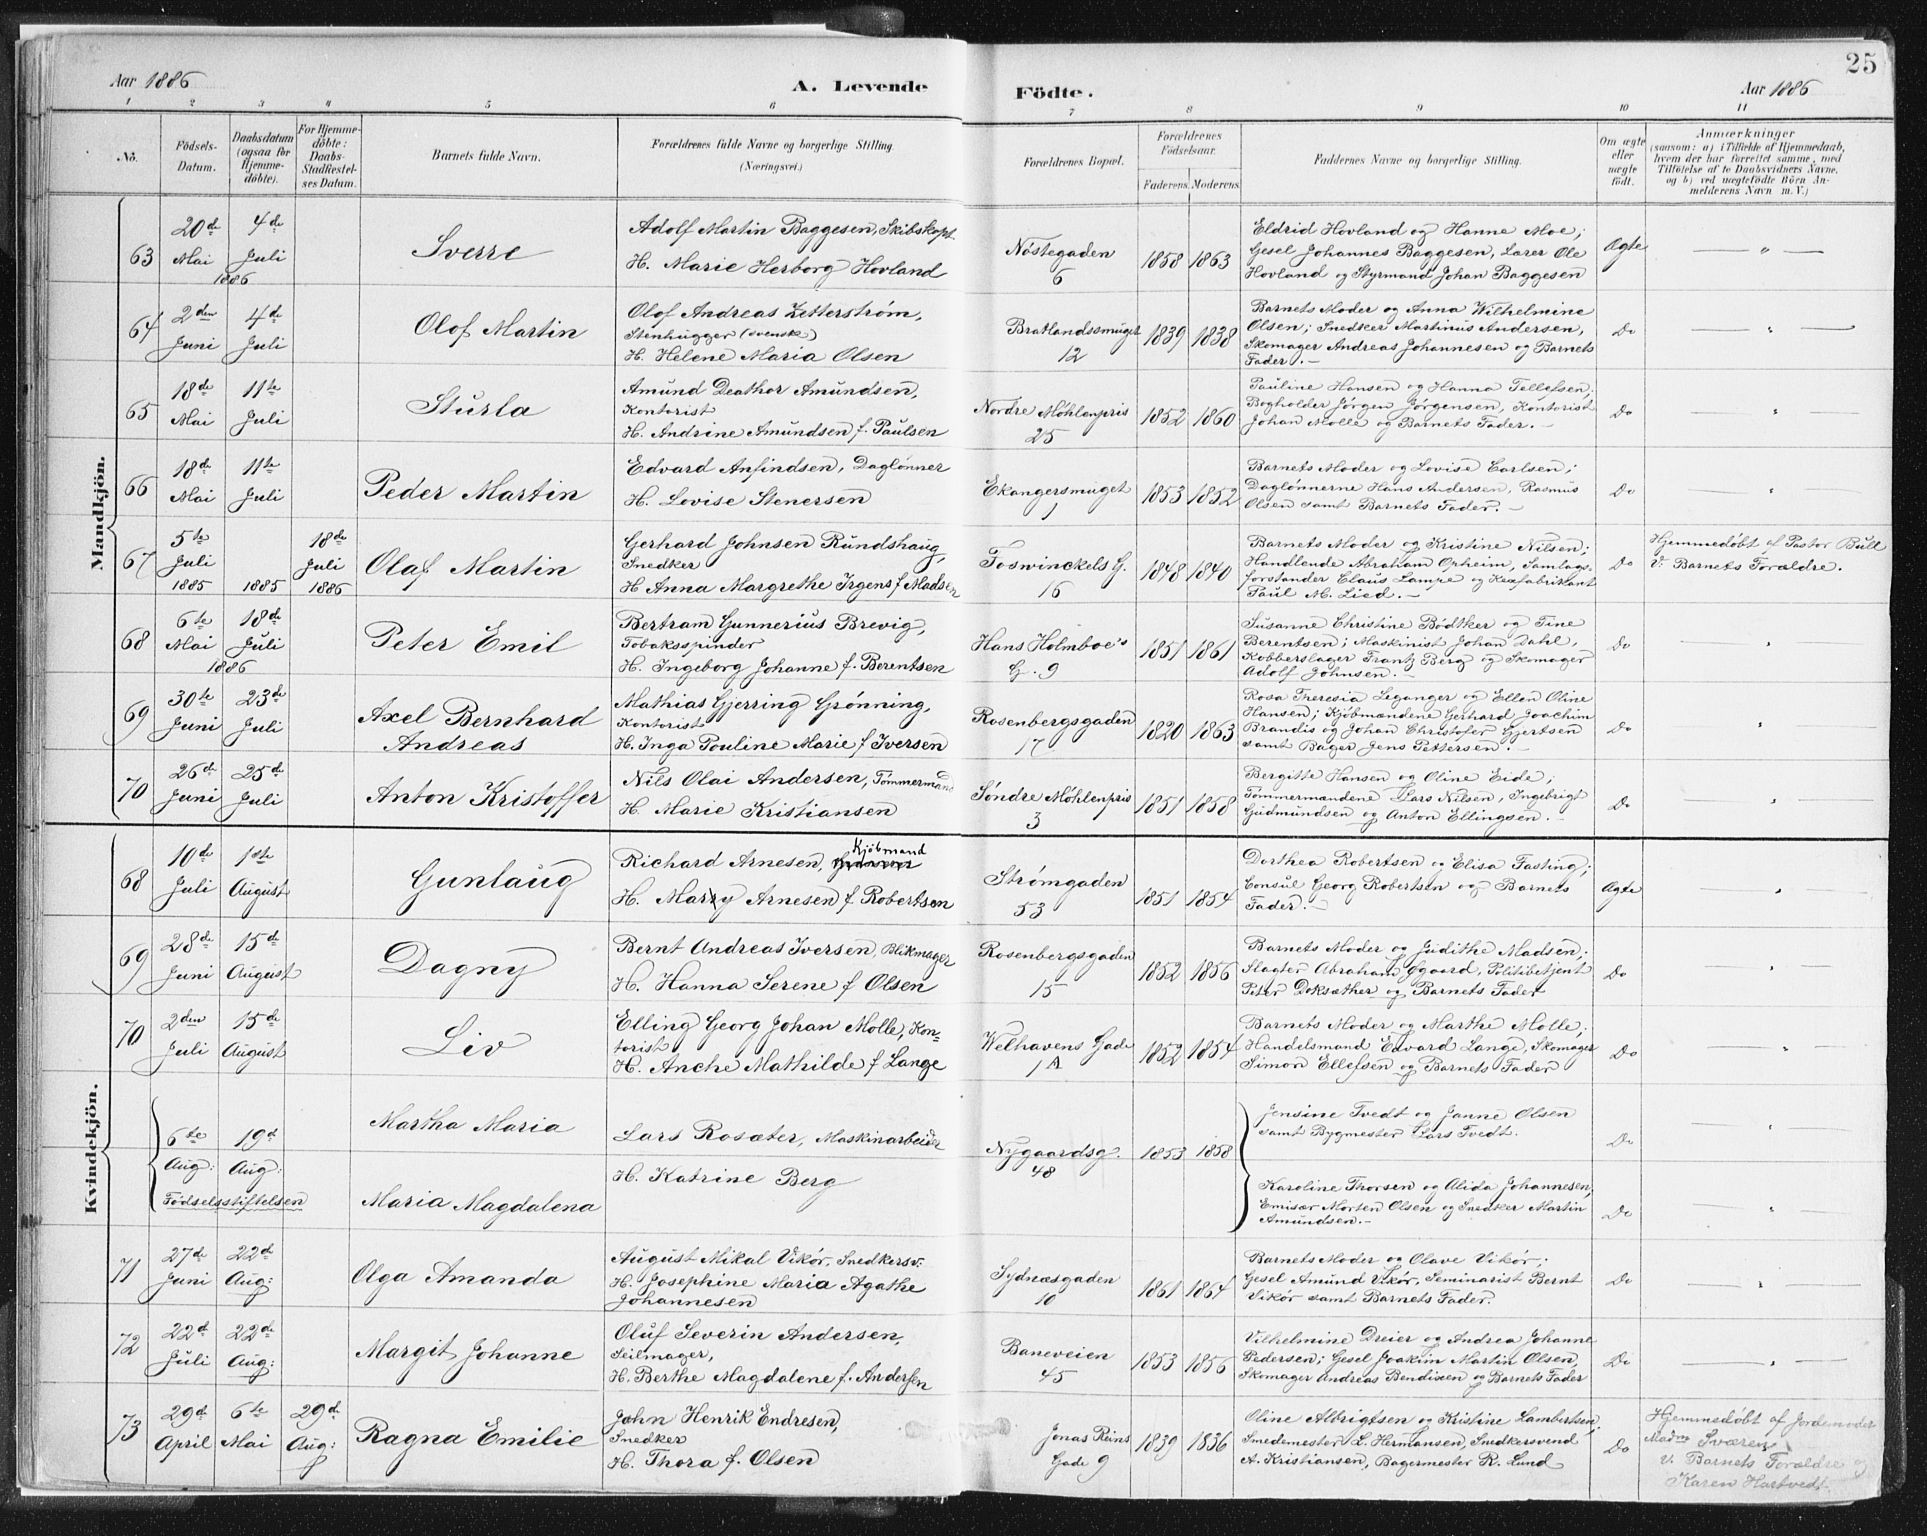 25
Aar 1886
A. Levende Födte.
Aar 1886
1 2 3 4 5 6 7 8 9 10 11
No.
Födsels-Datum.
Daabsdatum (ogsaa for Hjemme-døbte).
For Hjemme-döbte: Daabs-Stadfæstel-ses Datum.
Barnets fulde Navn.
Forældrenes fulde Navne og borgerlige Stilling (Næringsvei.)
Forældrenes Bopæl.
Forældrenes Födselsaar.
Faderens. Moderens.
Faddernes Navne og borgerlige Stilling.
Om ægte eller uægte født.
Anmærkninger
(saasom: a) i Tilfælde af Hjemmedaab,
hvem der har forrettet samme, med
Tilföielse af to Daabsvidners Navne,
og b) ved uægtefödte Börn An-
melderens Navn m. V.)
Mandkjön.
63 20de Mai 1886 4de Juli
Sverre
Adolf Martin Baggesen, Skibskapt.
H. Marie Herborg Hovland
Nöstegaden 6
1858 1863
Eldrid Hovland og Hanne Moe;
Gesel Johannes Baggesen, Lærer Ole
Hovland og Styrmand Johan Baggesen
Ægte
64 2den Juni 4de Juli
Olof Martin
Olof Andreas Zetterstrøm,
Stenhugger (svensk)
H. Helene Maria Olsen
Bratlandssmuget 12
1839 1838
Barnets Moder og Anna Wilhelmine
Olsen; Snedker Martinus Andersen,
Skomager Andreas Johannesen og Barnets
Fader.-
Do
65 18de Mai 11te Juli
Sturla
Amund Deathor Amundsen,
Kontorist
H. Andrine Amundsen f. Paulsen
Nordre Møhlenpris 25
1852 1860
Pauline Hansen og Hanna Tellefsen;
Bogholder Jörgen Jörgensen, Kontorist
Johan Molle og Barnets Fader.-
Do
66 18de Mai 11te Juli
Peder Martin
Edvard Anfindsen, Daglønner
H. Lovise Stenersen
Ekangersmuget 1
1853 1852
Barnets Moder og Lovise Carlsen;
Daglønnerne Hans Andersen, Rasmus
Olsen samt Barnets Fader.-
Do
67 5te Juli 1885 1885 18de Juli 1886
Olaf Martin
Gerhard Johnsen Rundshaug,
Snedker
H Anna Margrethe Irgens f Madsen
Foswinckels G. 16
1848 1840
Barnets Moder og Kristine Nilsen;
Handlende Abraham Opheim, Samlags-
forstander Claus Lampe og Kexfabrikant
Paul M. Lied.-
Do
Hjemmedøbt af Pastor Bull
v. Barnets Forældre.
68 6te Mai 1886 18de Juli
Peter Emil
Bertram Gunnerius Brevig,
Tobaksspinder
H. Ingeborg Johanne f. Berentsen
Hans Holmboe's G. 9
1851 1861
Susanne Christine Bödtker og Tine
Berentsen; Maskinist Johan Dahl,
Kobberslager Frantz Berg og Skomager
Adolf Johnsen.-
Do
69 30te Juni 23de Juli
Axel Bernhard
Andreas
Mathias Gjerring Grønning,
Kontorist
H. Inga Pouline Marie f Iversen
Rosenbergsgaden 17
1820 1863
Rosa Theresia Leganger og Ellen Oline
Hansen; Kjöbmændene Gerhard Joachim
Brandis og Johan Christofer Gjertsen
samt Bager Jens Pettersen.-
Do
70 26de Juni 25de Juli
Anton Kristoffer
Nils Olai Andersen, Tømmermand
H. Marie Kristiansen
Søndre Møhlenpris 3
1851 1858
Bergitte Hansen og Oline Eide;
Tømmermændene Lars Nilsen, Ingebrigt
Gudmundsen og Anton Ellingsen.-
Do
Kvindekjön.
68 10de Juli 1ste August
Gunlaug
Richard Arnesen, Kjöbmand
H. Marry Arnesen f Robertson
Strømgaden 53
1851 1854
Dorthea Robertsen og Elisa Fasting;
Consul Georg Robertsen og Barnets
Fader.-
Ægte
69 28de Juni 15de August
Dagny
Bernt Andreas Iversen, Blikmager
H. Hanna Serene f Olsen
Rosenbergsgaden 15
1852 1856
Barnets Moder og Judithe Madsen;
Slagter Abraham Øgaard, Politibetjent
Peter Doksæther og Barnets Fader
Do
70 2den Juli 15de August
Liv
Elling Georg Johan Molle, Kon-
torist
H. Anche Mathilde f Lange
Welhavens Gade 1A
1852 1854
Barnets Moder og Marthe Molle;
Handelsmand Edvard Lange, Skomager
Simon Ellefsen og Barnets Fader
Do
6te Aug: 19d Aug:
Fødselsstiftelsen
Martha Maria
Maria Magdalena
Lars Rosæter, Maskinarbeider
H. Katrine Berg
Nygaardsg. 48
1853 1858
Jensine Tvedt og Janne Olsen
samt Bygmester Lars Tvedt.
Do
Karoline Thorsen og Alida Johannesen,
Emisær Morten Olsen og Snedker Martin
Amundsen.-
Do
71 27de Juni 22d Aug:
Olga Amanda
August Mikal Vikör, Snedkersv:
H. Josephine Maria Agathe
Johannesen
Sydnæsgaden 10
1861 1864
Barnets Moder og Olave Vikör;
Gesel Amund Vikör, Seminarist Bernt
Vikör samt Barnets Fader.
Do
72 22d Juli 22de Aug:
Margit Johanne
Oluf Severin Andersen,
Seilmager,
H. Berthe Magdalene f. Andersen
Baneveien 45
1853 1856
Vilhelmine Dreier og Andrea Johanne
Pedersen; Gesel Joakim Martin Olsen,
Skomager Andreas Bendixen og Barnets Fader
Do
73 29d April 6te Mai 29d Aug:
Ragna Emilie
John Henrik Endresen,
Snedker
H. Thora f. Olsen
Jonas Reins Gade 9
1839 1836
Oline Albrigtsen og Kristine Lambertsen;
Smedemester L. Hermansen, Snedkersvend
A. Kristiansen, Bagermester R. Lund
Do
Hjemmedøbt af Jordemoder
Madm Sværen
v. Barnets Forældre og
Karen Hartvedt.